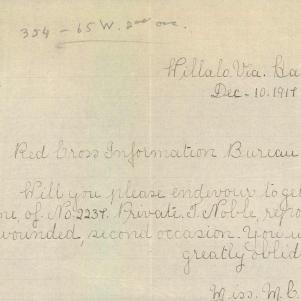 354 - 65 W. 2nd ave.
Willalo Via. Ba
Dec - 10. 1917
Red Cross Information Bureau
Will you please endevour to ge
of No. 2237. Private. T. Noble, repo
wounded, second occasion. You w
greatly oblid
Miss. M. C